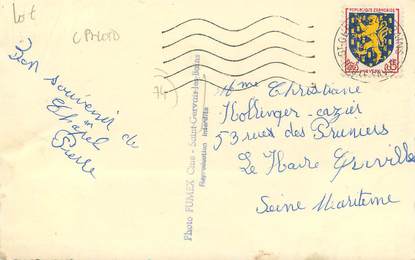 Lot
CPHOTO
74
Bon souvenir de
Chapel
Pierre
Photo FUMEX Cine - Saint-Gervais-les-Bains
Reproduction interdite
REPUBLIQUE FRANÇAISE
Mme Christiane
Hollinger-cazier
53 rue des Pruniers
Le Havre Griville
Seine Maritime